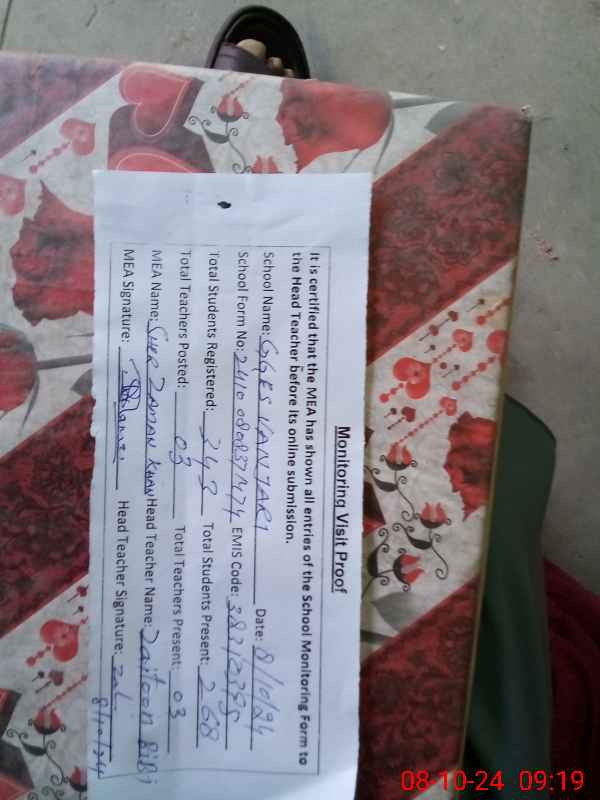 Monitoring Visit Proof
It is certified that the MEA has shown all entries of the School Monitoring Form to
the Head Teacher before its online submission.
School Name: GGPS Date: 8/10/24
School Form No: EMIS Code:
Total Students Registered: 243 Total Students Present: 268
Total Teachers Posted: 03 Total Teachers Present: 03
MEA Name: Sher Zaman Khan Head Teacher Name: Zaitoon BiBi
MEA Signature: Head Teacher Signature:
8/10/24
08-10-24 09:19